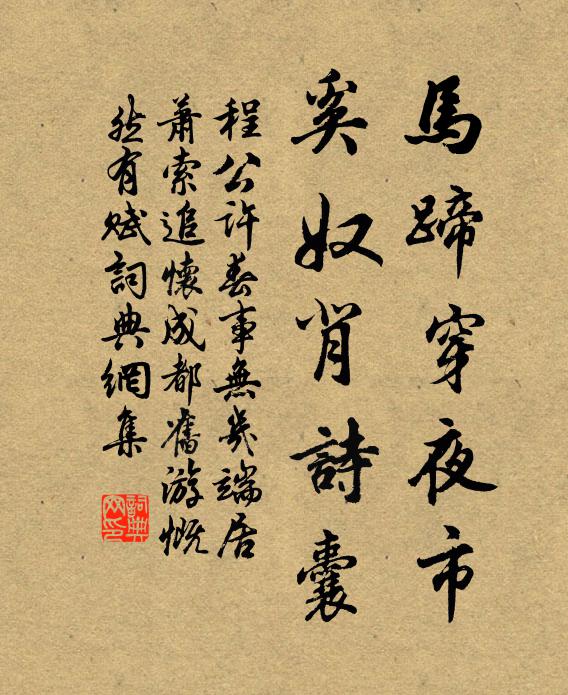 馬蹄穿夜市
奚奴背詩囊
程公許春事無幾端居
蕭索追懷成都舊游慨
然有賦詞典網集
詞典
网印